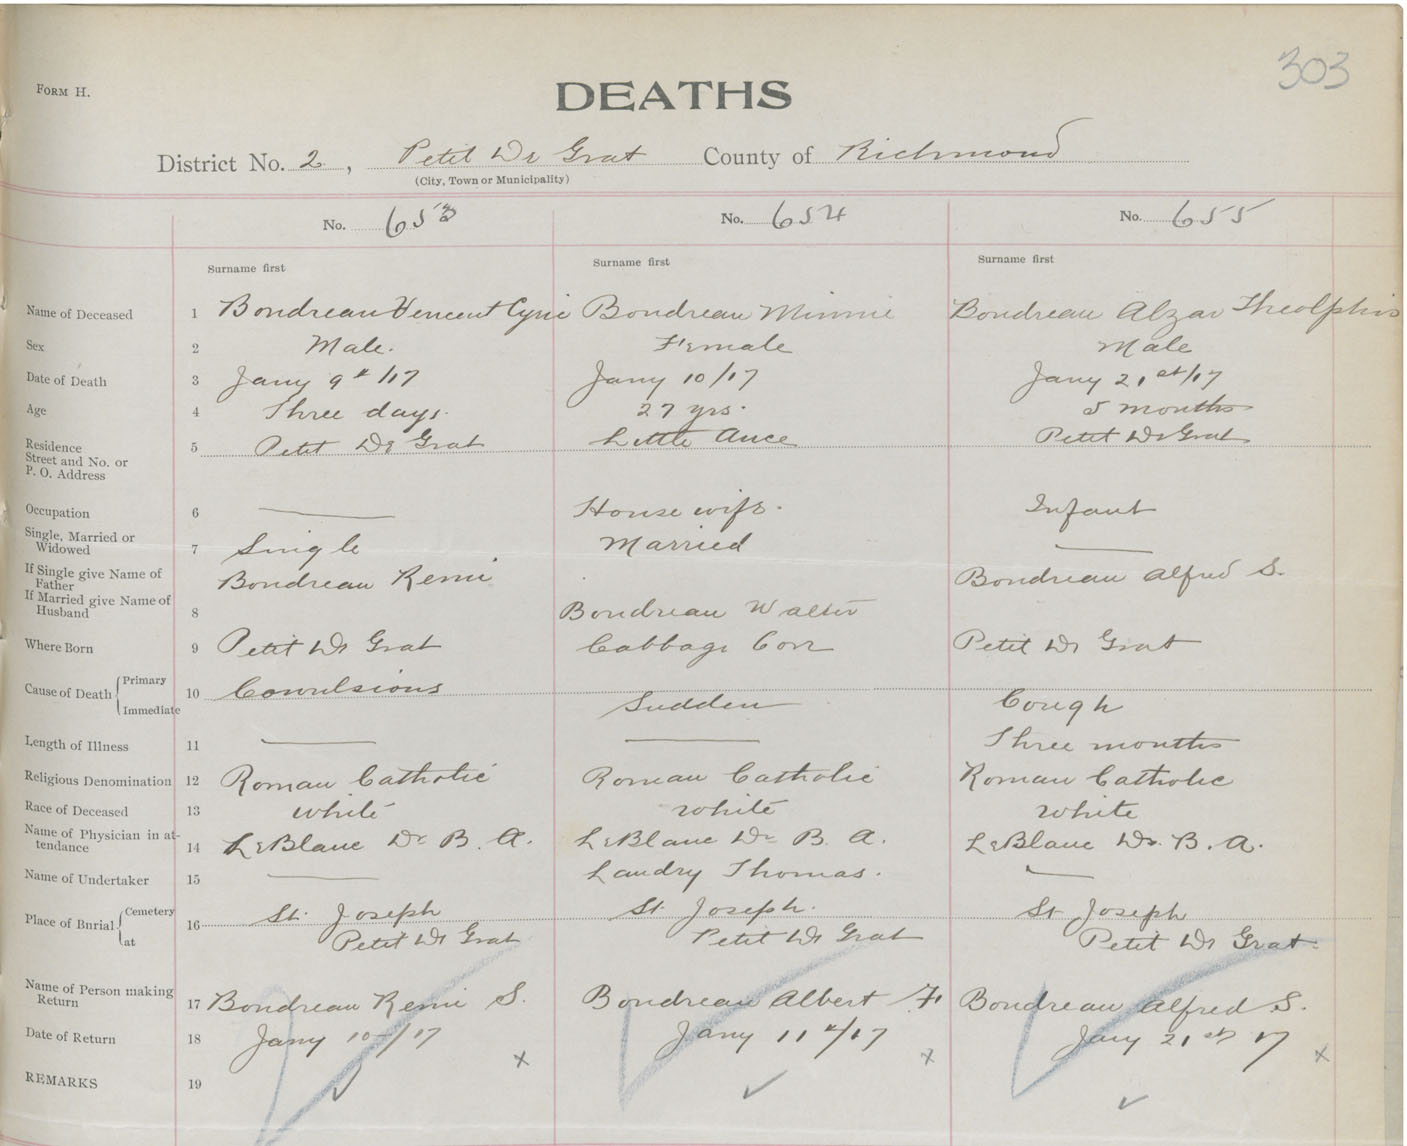 303
FORM H.
DEATHS
District No. 2, Petit De Grat County of Richmond
(City, Town or Municipality)
No. 653 No. 654 No. 655
Surname first Surname first Surname first
Name of Deceased 1 Boudreau Vencent Cyric Boudreau Minnie Boudreau Alzar Theolphis
Sex 2 Male. Female Male
Date of Death 3 Jany 9th/17 Jany 10/17 Jany 21st/17
Age 4 Three days. 27 yrs. 5 months
Residence Street and No. or P. O. Address 5 Petit De Grat Little Ance Petit De Grat
Occupation 6 — House wife. Infant
Single, Married or Widowed 7 Single Married —
If Single give Name of Father Boudreau Remi Boudreau Alfred S.
If Married give Name of Husband 8 Boudreau Walter
Where Born 9 Petit De Grat Cabbage Cove Petit De Grat
Cause of Death { Primary Immediate 10 Convulsions Sudden Cough
Length of Illness 11 — — Three months
Religious Denomination 12 Roman Catholic Roman Catholic Roman Catholic
Race of Deceased 13 white white white
Name of Physician in attendance 14 LeBlanc Dr B. A. LeBlanc Dr B. A. LeBlanc Dr. B. A.
Name of Undertaker 15 — Landry Thomas. —
Place of Burial { Cemetery 16 St. Joseph St. Joseph. St Joseph
at Petit De Grat Petit De Grat Petit De Grat.
Name of Person making Return 17 Boudreau Remi S. Boudreau Albert F. Boudreau Alfred S.
Date of Return 18 Jany 10/17 Jany 11th/17 Jany 21st 17
x x x
REMARKS 19 ✓ ✓ ✓